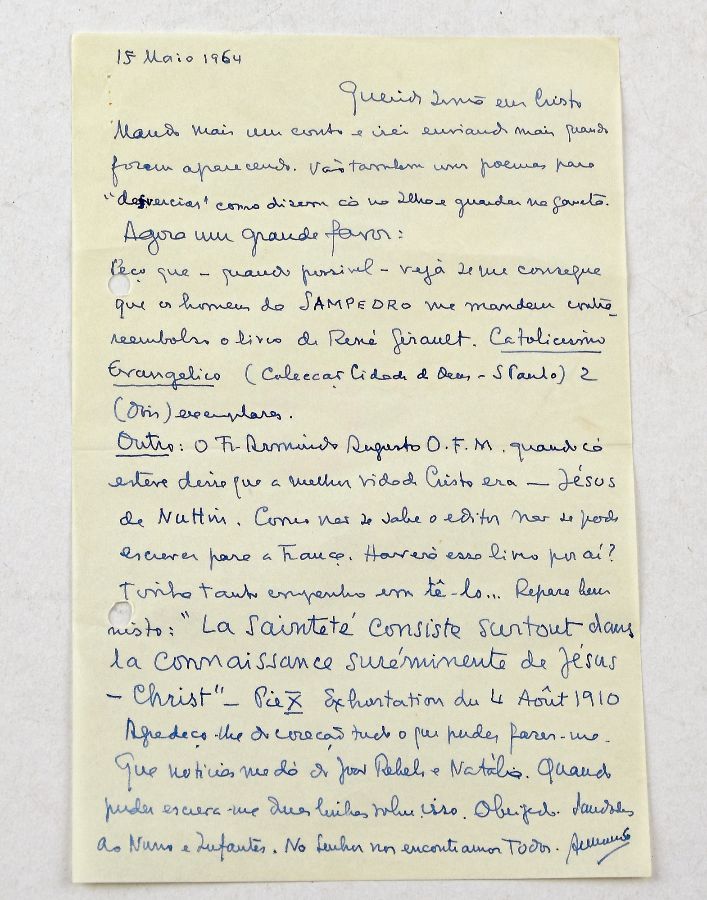 15 Maio 1964
Querido Irmão em Cristo
Mando mais um conto e irei enviando mais quando
forem aparecendo. Vão também uns poemas para
como dizem cá na Ilha e guardar na gaveta.
Agora um grande favor:
Peço que – quando possível – vejá se me consegue
que os homens do SAMPEDRO me mandem contra
reembolso o livro de René Girault. Catolicismo
Evangélico (Colecção Cidade de Deus – S Paulo) 2
(dois) exemplares.
Outro: O Fr. Armindo Augusto O.F.M. quando cá
esteve disse que a melhor vida de Cristo era – Jésus
de Nuttin. Como não se sabe o editor não se pode
escrever para a França. Haverá esse livro por aí?
Tinha tanto empenho em tê-lo... Repare bem
nisto: "La Sainteté consiste surtout dans
la connaissance suréminente de Jésus
– Christ" – Pie X Exhortation du 4 Août 1910
Agradeço-lhe do coração tudo o que puder fazer-me.
Que notícias me dá de João Rebelo e Natália. Quando
puder escreva-me duas linhas sobre isso. Obrigado. Saudades
ao Nuno e Infantes. No Senhor nos encontramos Todos. Armando